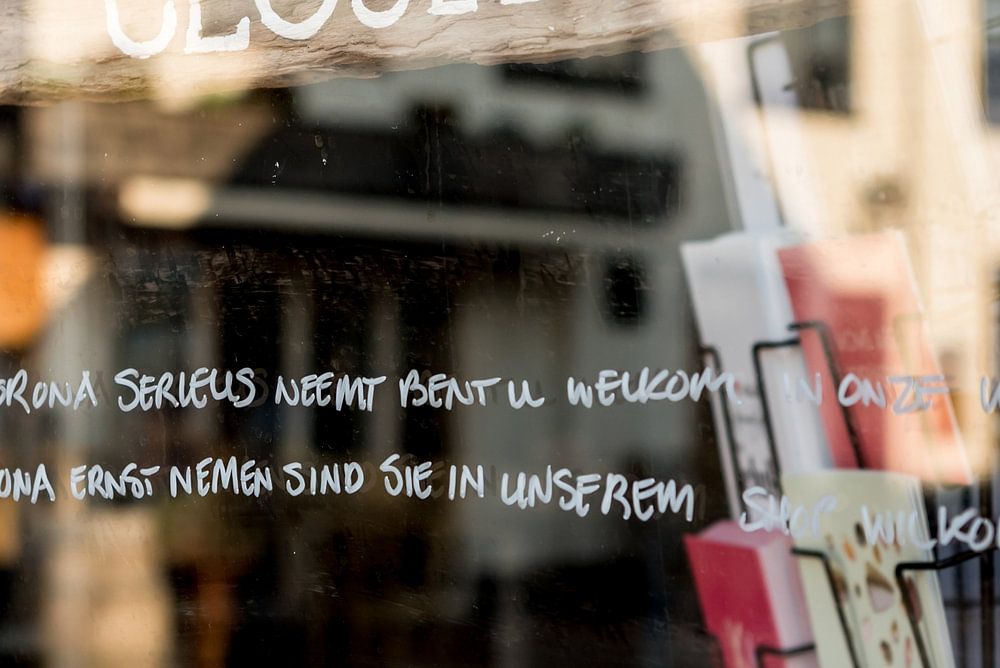 CLOSED
ORONA SERIEUS NEEMT BENT U WELKOM IN ONZE
ONA ERNST NEMEN SIND SIE IN UNSEREM SHOP WILKO